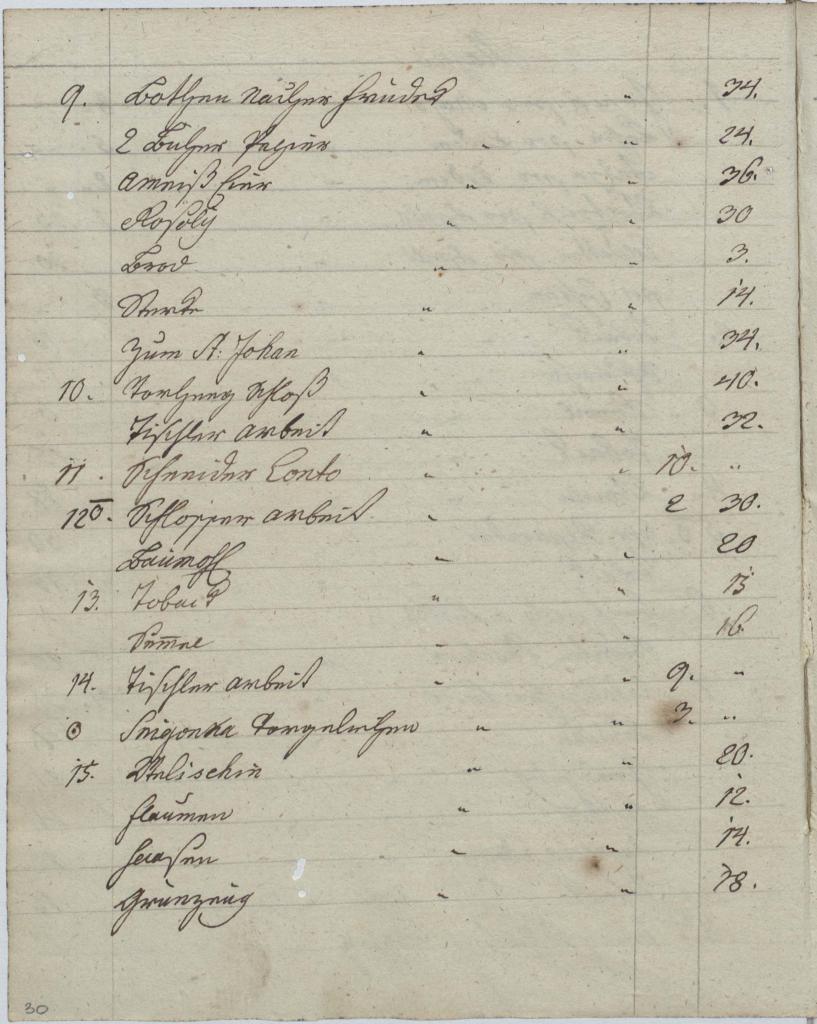 9. Bothen nacher " 34.
2 Bücher Papier " " 24.
Ameiß Eier " " 36.
Rosoly " " 30
Brod " " 3.
Sterke " " 14.
Zum A: Johan " " 34.
10. Vorheng Schloß " " 40.
Tischler arbeit " " 32.
11. Schneider Conto " " 10. "
12 Schlosser arbeit " 2 30.
Baumöhl " " 20
13. Toback " " 15
Semmel " " 16
14. Tischler arbeit " " 9. "
Vorgeliehen " " 3. "
15. " " 20.
Flaumen " " 12.
Haasen " " 14.
Grünzeug " " 18.
30